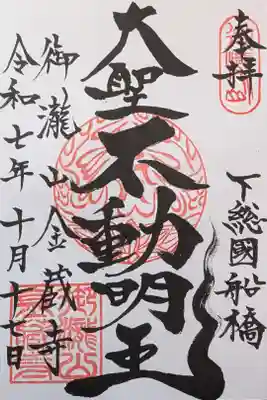 奉拝
下総國船橋
大聖不動明王
御瀧山金蔵寺
令和七年十月十七日